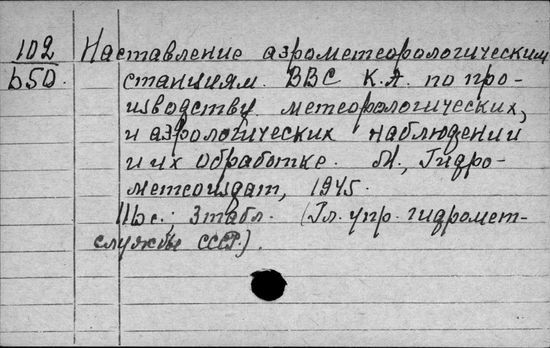 102 Наставление аэрометеорологическим
650. станциям ВВС К.А. по про-
изводству метеорологических,
и аэрологических наблюдений
и их обработке. М., Гидро-
метеоиздат, 1945.
с.; 3 табл. (Гл. упр. гидромет-
службы СССР.).